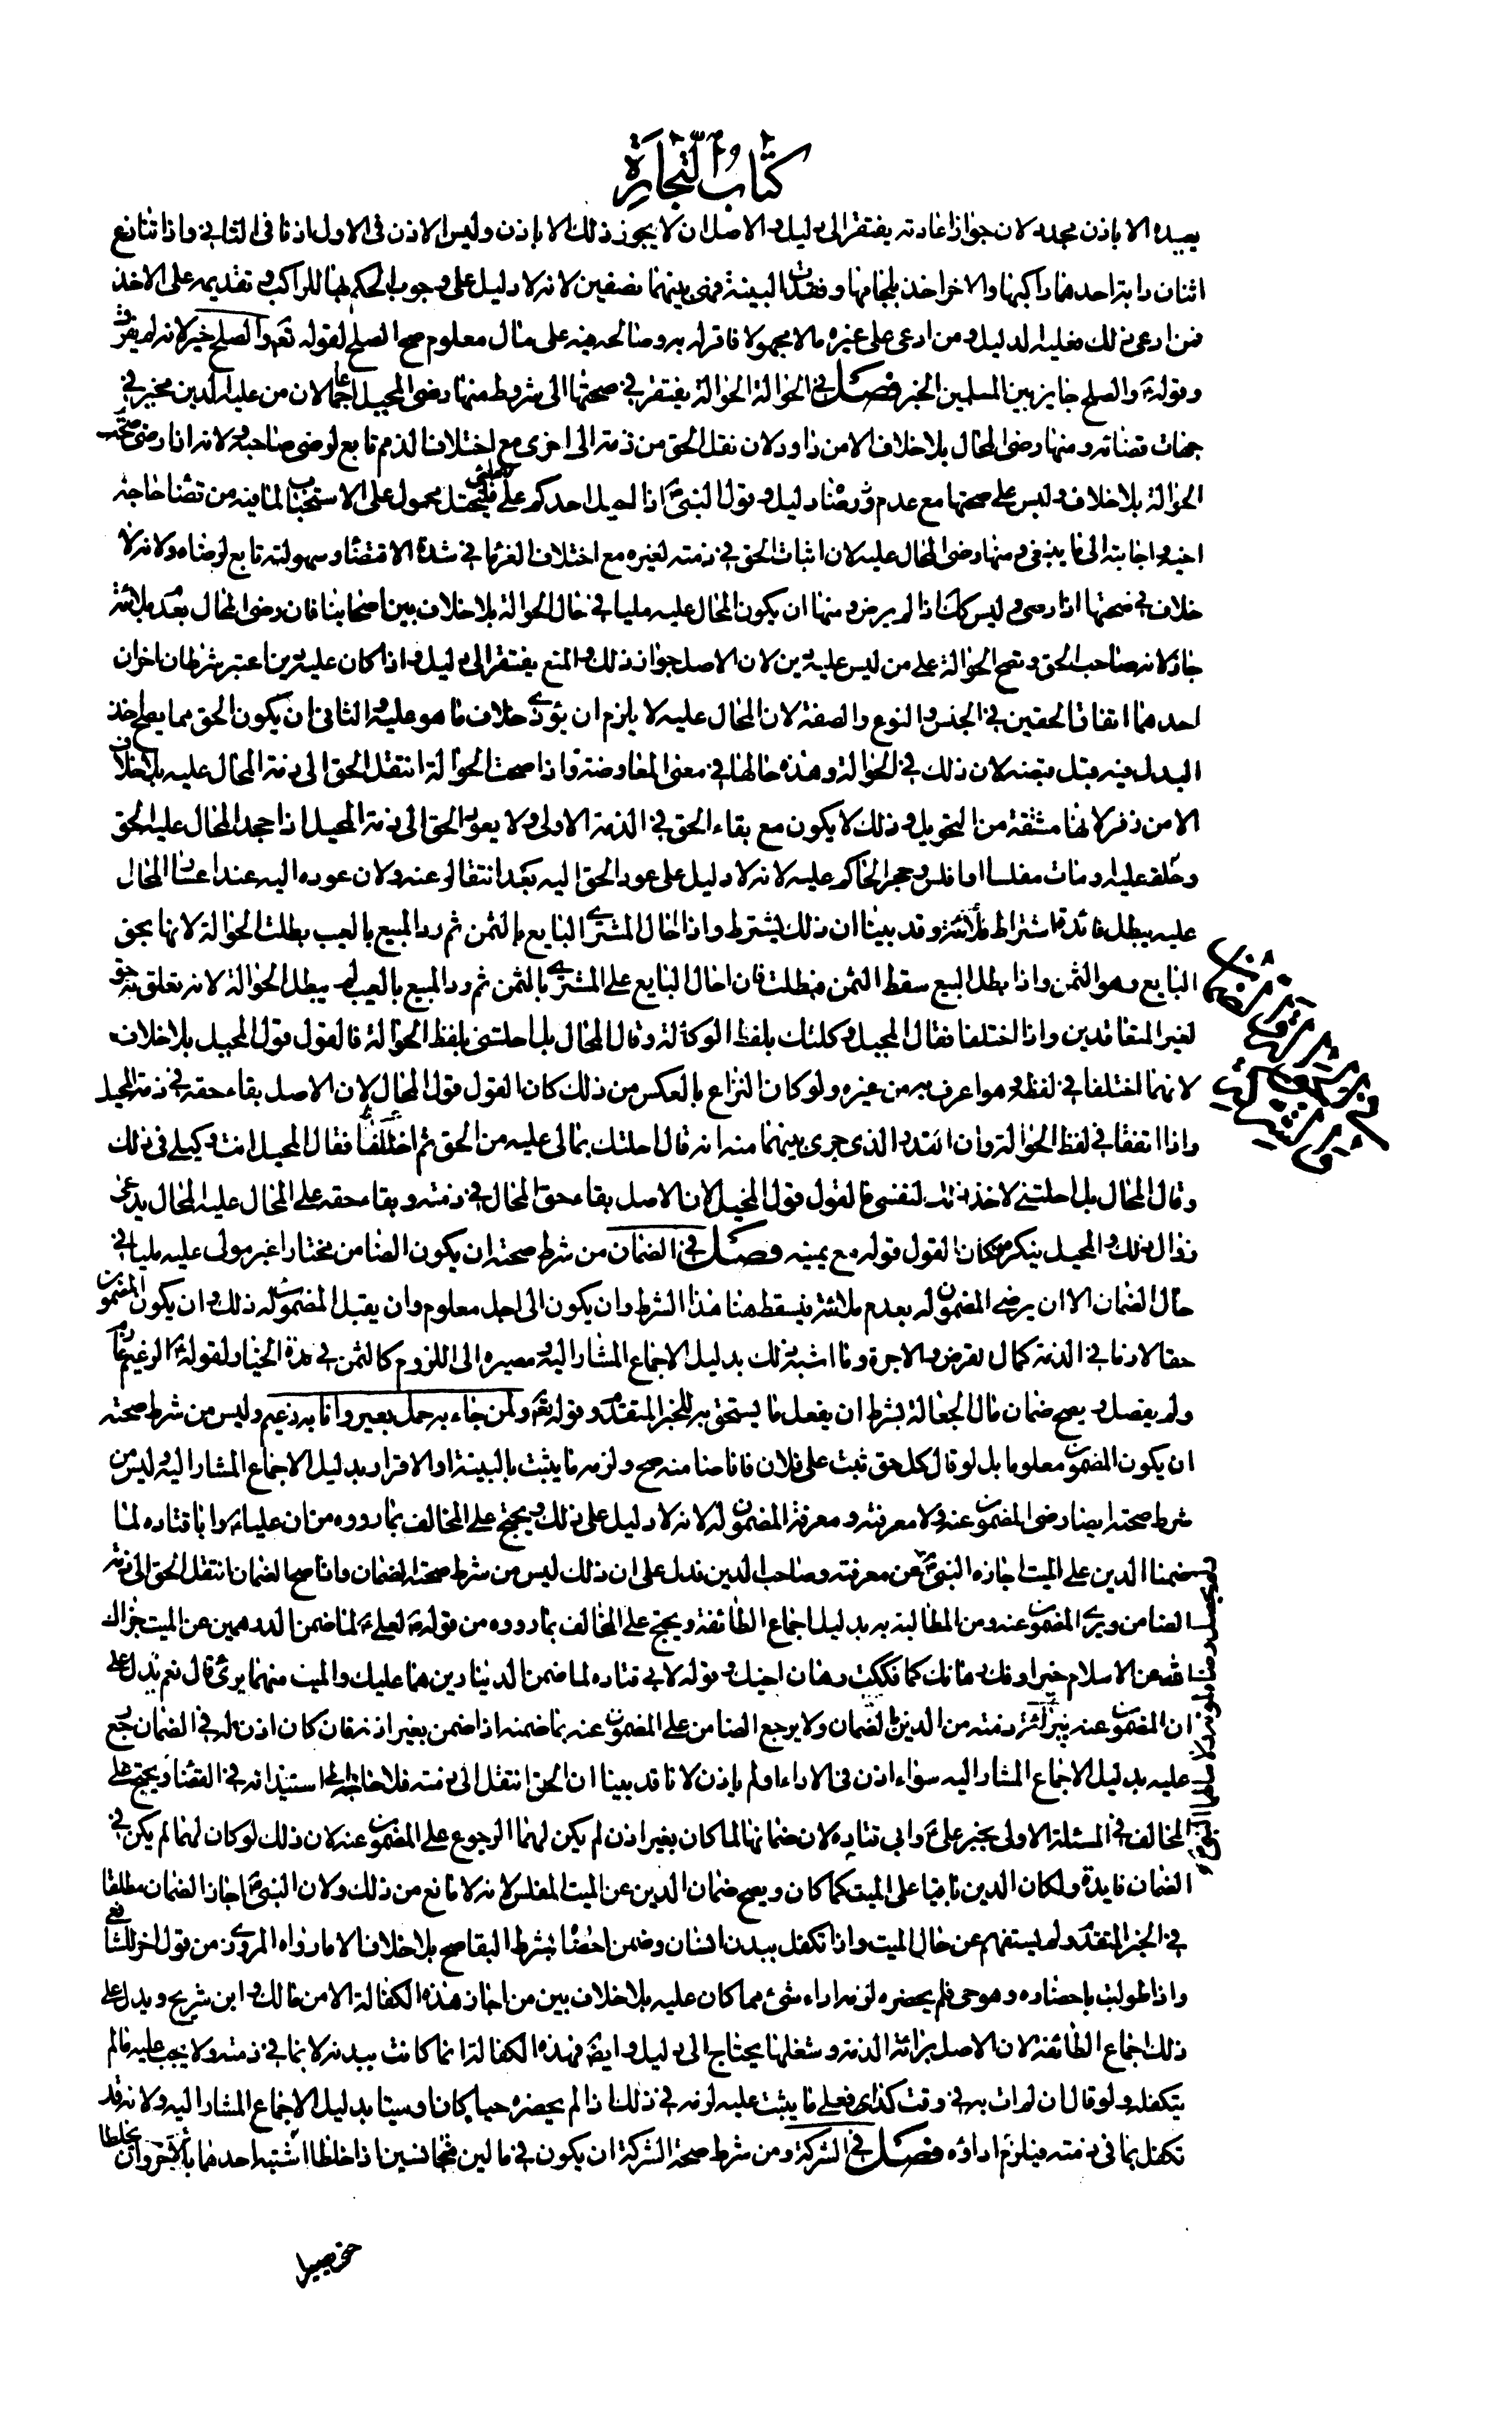 كتاب التجارة
يعيده الا باذن مجدد لان جواز اعادته يفتقر الى دليل والاصل ان لا يجوز ذلك الا باذن وليس الاذن فى الاول اذنا فى الثانى واذا تنازع
اثنان دابة احدهما راكبها والاخر اخذ بلجامها وفقدت البينة فهى بينهما نصفين لانه لا دليل على وجوب الحكم بها للراكب وتقديمه على الاخذ
فمن ادعى ذلك فعليه الدليل ومن ادعى على غيره مالا مجهولا فاقر له به وصالحه منه على مال معلوم صح الصلح لقوله تعم والصلح خير لانه لم يفرق
وقوله ع والصلح جايز بين المسلمين الخبر فصل فى الحوالة الحوالة يفتقر فى صحتها الى شروط منها رضى المحيل اجماعا لان من عليه الدين مخير فى
جهات قضائه ومنها رضى المحال بلا خلاف الا من داود لان نقل الحق من ذمة الى اخرى مع اختلاف الذمم تابع لرضى صاحبه ولانه اذا رضى صحت
الحوالة بلا خلاف وليس على صحتها مع عدم رضاه دليل وقول النبى ص اذا احيل احدكم على ملى فليحتل محمول على الاستحباب لما فيه من قضاء حاجة
اخيه واجابته الى ما يبتغيه ومنها رضى المحال عليه لان اثبات الحق فى ذمته لغيره مع اختلاف الغرماء فى شدة الاقتضاء وسهولته تابع لرضاه ولانه لا
خلاف فى صحتها اذا رضى وليس كك اذا لم يرض ومنها ان يكون المحال عليه مليا فى حال الحوالة بلا خلاف بين اصحابنا فان رضى المحال بعدم ملائته
جاز لانه صاحب الحق وتصح الحوالة على من ليس عليه دين لان الاصل جواز ذلك والمنع يفتقر الى دليل واذا كان عليه دين اعتبر شرطان اخران
احدهما اتفاق الحقين فى الجنس والنوع والصفة لان المحال عليه لا يلزم ان يؤدى خلاف ما هو عليه والثانى ان يكون الحق مما يصح اخذ
البدل فيه قبل قبضه لان ذلك فى الحوالة وهذه حالها فى معنى المعاوضة واذا صحت الحوالة انتقل الحق الى ذمة المحال عليه بلا خلاف
الا من زفر لانها مشتقة من التحويل وذلك لا يكون مع بقاء الحق فى الذمة الاولى ولا يعود الحق الى ذمة المحيل اذا جحد المحال عليه الحق
وحلف عليه او مات مفلسا او افلس وحجر الحاكم عليه لانه لا دليل على عود الحق اليه بعد انتقاله عنه ولان عوده اليه عند اعسار المحال
عليه يبطل فائدة اشتراط ملائته وقد بينا ان ذلك يشترط واذا احال المشترى البايع بالثمن ثم رد المبيع بالعيب بطلت الحوالة لانها بحق
البايع وهو الثمن واذا بطل البيع سقط الثمن فبطلت فان احال البايع على المشترى بالثمن ثم رد المبيع بالعيب لم يبطل الحوالة لانه تعلق به حق
لغير المتعاقدين واذا اختلفا فقال المحيل وكلتك بلفظ الوكالة وقال المحال بل احلتنى بلفظ الحوالة فالقول قول المحيل بلا خلاف
لانهما اختلفا فى لفظه وهو اعرف به من غيره ولو كان النزاع بالعكس من ذلك كان القول قول المحال لان الاصل بقاء حقه فى ذمة المحيل
واذا اتفقا فى لفظ الحوالة وان القدر الذى جرى بينهما منه انه قال احلتك بمالى عليه من الحق ثم اختلفا فقال المحيل انت وكيلى فى ذلك
وقال المحال بل احلتنى لاخذ ذلك لنفسى فالقول قول المحيل لان الاصل بقاء حق المحال فى ذمته وبقاء حقه على المحال عليه المحال يدعى
زوال ذلك والمحيل ينكره فكان القول قوله مع يمينه فصل فى الضمان من شرط صحته ان يكون الضامن مختارا غير مولى عليه مليا فى
حال الضمان الا ان يرضى المضمون له بعدم ملائته فيسقط هنا هذا الشرط وان يكون الى اجل معلوم وان يقبل المضمون له ذلك وان يكون المضمون
حقا لازما فى الذمة كمال القرض والاجرة وما اشبه ذلك بدليل الاجماع المشار اليه ومصيره الى اللزوم كالثمن فى مدة الخيار لقوله ع الزعيم غارم
ولم يفصل ويصح ضمان مال الجعالة بشرط ان يفعل ما يستحق به للخبر المتقدم وقوله تعم ولمن جاء به حمل بعير وانا به زعيم وليس من شرط صحته
ان يكون المضمون معلوما بل لو قال كل حق ثبت على فلان فانا ضامنه صح ولزمه ما يثبت بالبينة او الاقرار بدليل الاجماع المشار اليه وليس من
شرط صحته ايضا رضى المضمون عنه ولا معرفته ومعرفة المضمون له لانه لا دليل على ذلك ويحتج على المخالف بما رووه من ان عليا ع وابا قتادة لما
ضمنا الدين على الميت اجازه النبى ص من معرفته وصاحب الدين فدل على ان ذلك ليس من شرط صحة الضمان واذا صح الضمان انتقل الحق الى ذمة
الضامن وبرى المضمون عنه ومن المطالبة به بدليل اجماع الطائفة ويحتج على المخالف بما رووه من قوله ص لعلى ع لما ضمن الدرهمين عن الميت جزاك
الله عن الاسلام خيرا وفك رهانك كما فككت رهان اخيك وقوله لابى قتادة لما ضمن الدينارين هما عليك والميت منهما برئ قال نعم فدل على
ان المضمون عنه تبرأ ذمته من الدين بالضمان ولا يرجع الضامن على المضمون عنه بما ضمنه اذا ضمن بغير اذنه فان كان اذن له فى الضمان رجع
عليه بدليل الاجماع المشار اليه سواء اذن فى الاداء او لم ياذن لانا قد بينا ان الحق انتقل الى ذمته فلا حاجة الى استيذانه فى القضاء ويحتج على
المخالف فى المسئلة الاولى بخبر على ع وابى قتادة لان ضمانهما لما كان بغير اذن لم يكن لهما الرجوع على المضمون عنه لان ذلك لو كان لهما لم يكن فى
الضمان فايدة ولكان الدين باقيا على الميت كما كان ويصح ضمان الدين عن الميت المفلس لانه لا مانع من ذلك ولان النبى ص اجاز الضمان مطلقا
فى الخبر المتقدم ولم يستفهم عن حال الميت واذا تكفل ببدن انسان وضمن احضاره بشرط البقاء صح بلا خلاف الا ما رواه المروزى من قول اخر للشافعى
واذا طولب باحضاره وهو حى فلم يحضره لزمه اداء شئ مما كان عليه بلا خلاف بين من اجاز هذه الكفالة الا من مالك وابن شريح ويدل على
ذلك اجماع الطائفة لان الاصل برائة الذمة وشغلها يحتاج الى دليل وايضا فهذه الكفالة انما كانت ببدنه لا بما فى ذمته ولا يجب عليه ما لم
يتكفل ولو قال ان لم ات به فى وقت كذا فعلى ما يثبت عليه لزمه فى ذلك اذا لم يحضره حيا كان او ميتا بدليل الاجماع المشار اليه ولانه قد
تكفل بما فى ذمته فيلزمه اداؤه فصل فى الشركة ومن شرط صحة الشركة ان يكون فى مالين متجانسين اذا خلطا اشتبه احدهما بالاخر وان يخلطا